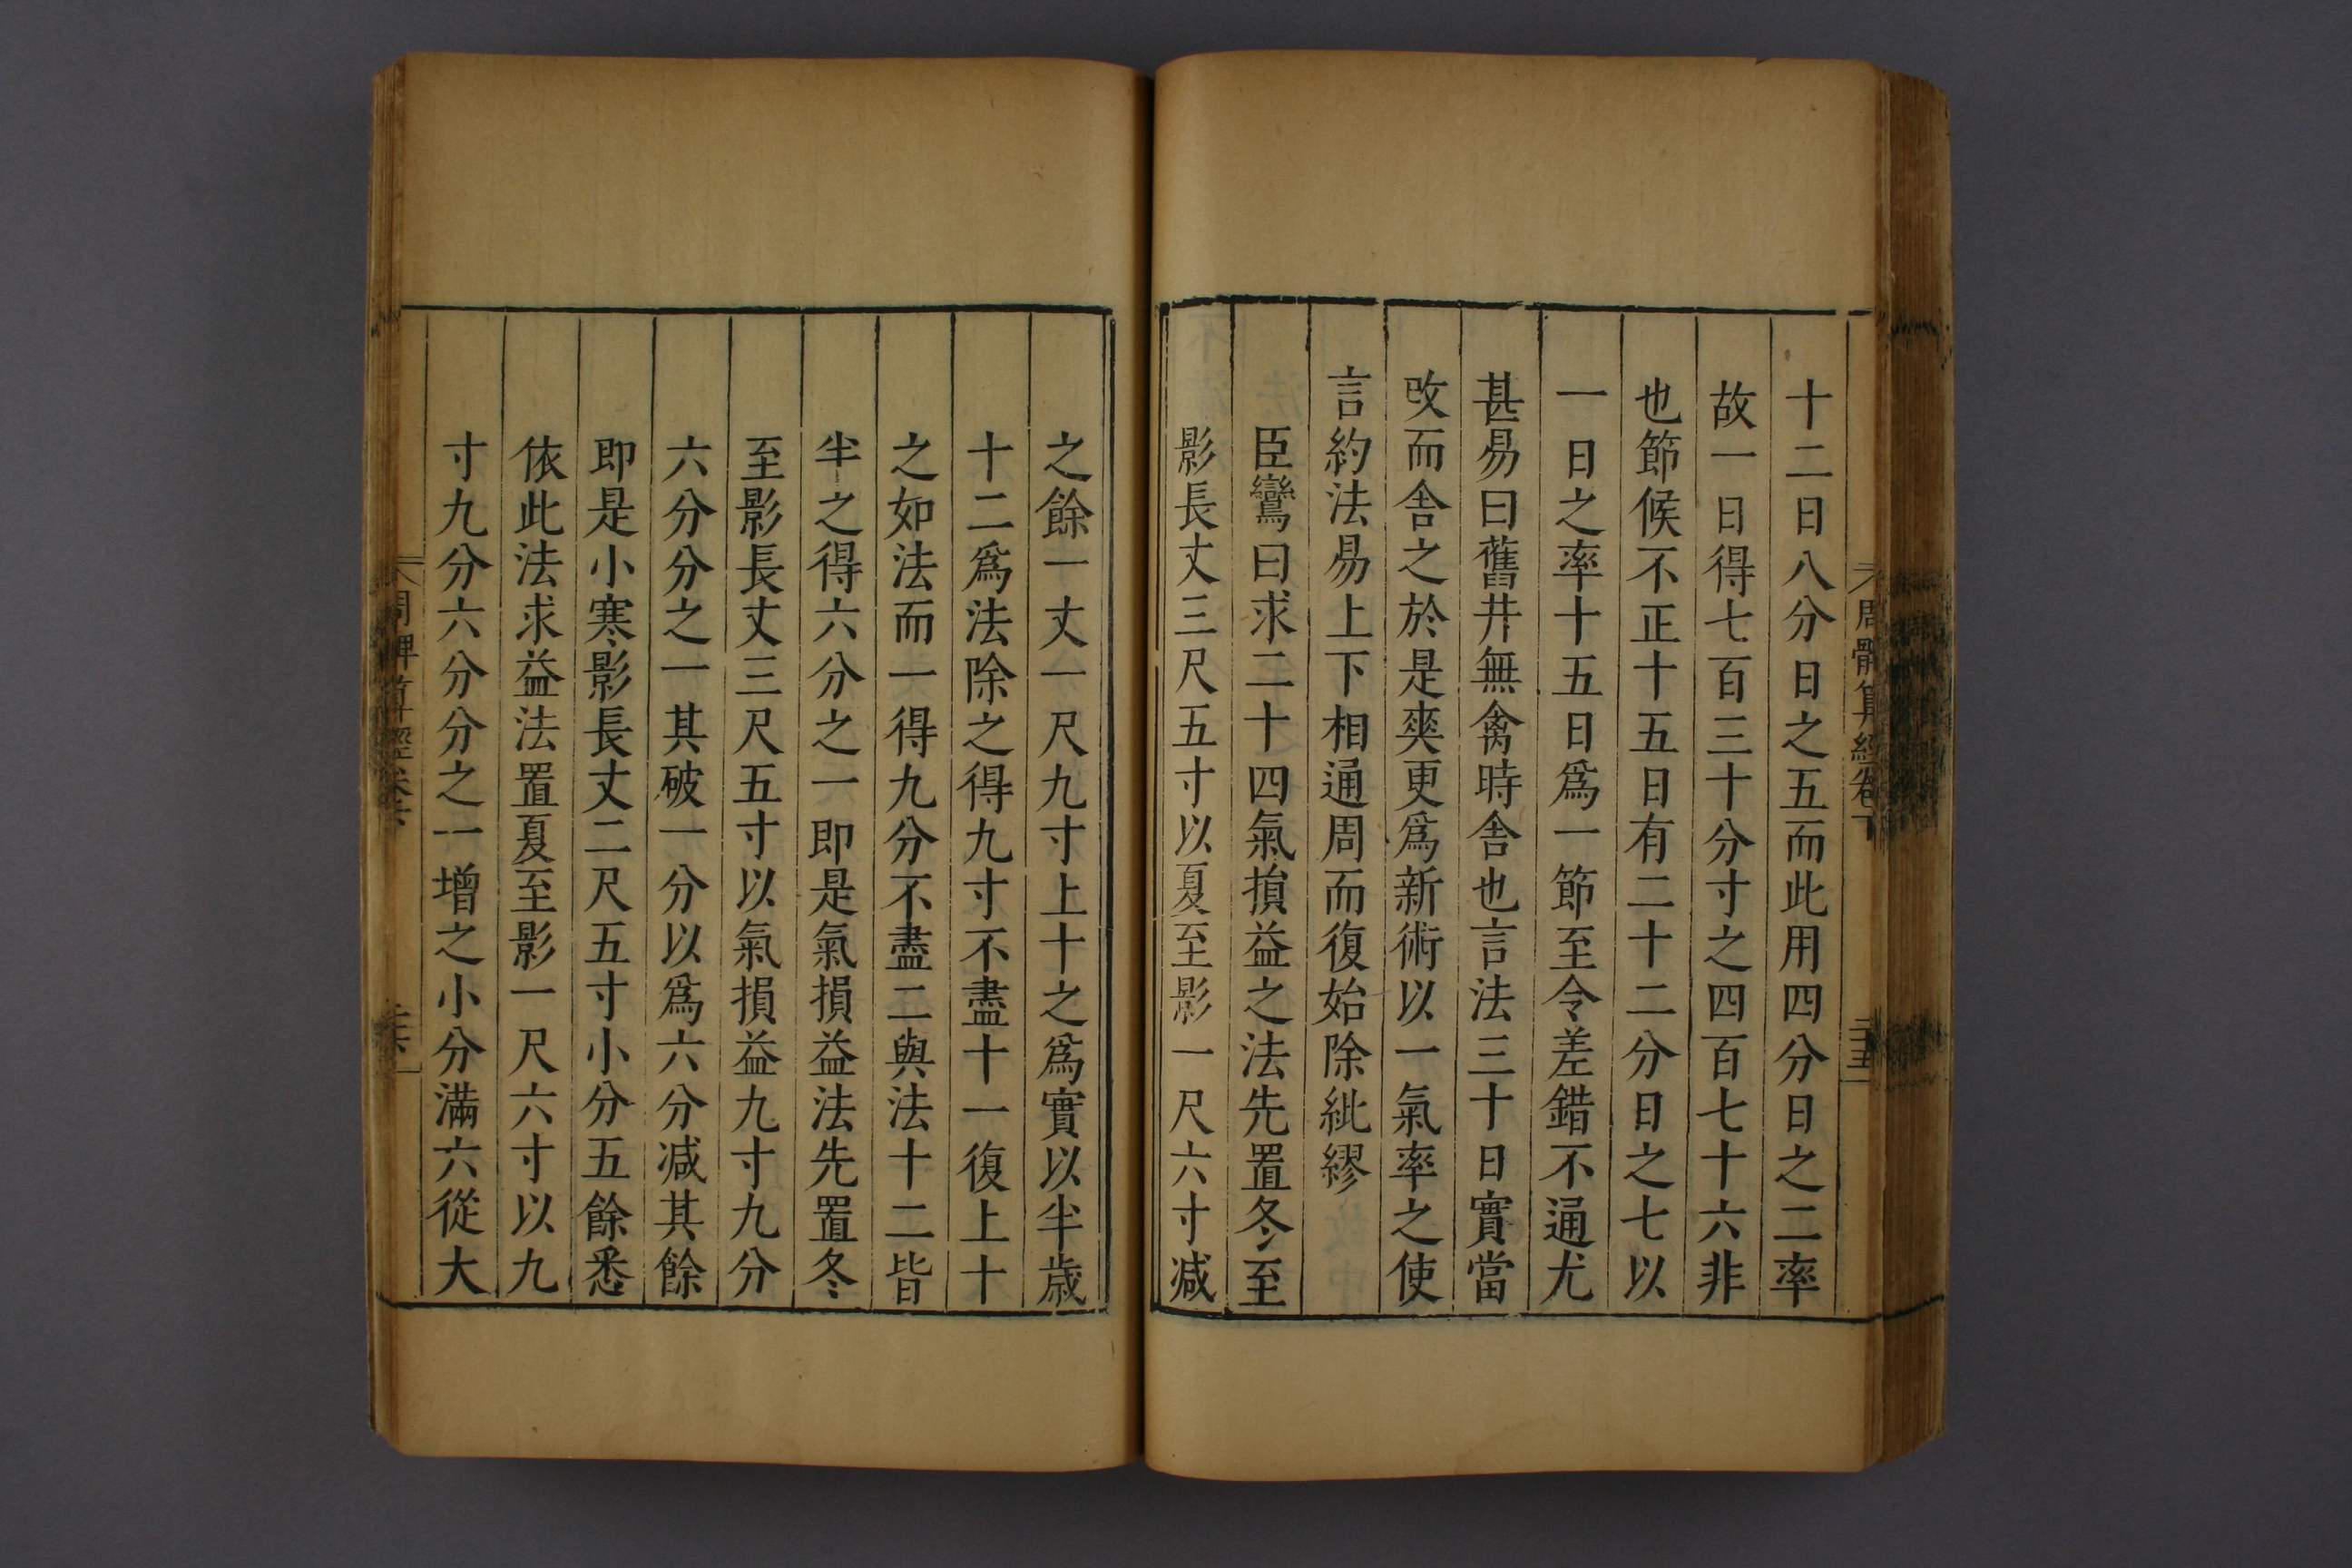 周髀算經卷下
二十五
十二日八分日之五而此用四分日之二率
故一日得七百三十分寸之四百七十六非
也節候不正十五日有二十二分日之七以
一日之率十五日爲一節至令差錯不通尤
甚易曰舊井無禽時舍也言法三十日實當
改而舍之於是爽更爲新術以一氣率之使
言約法易上下相通周而復始除紕繆
臣鸞曰求二十四氣損益之法先置冬至
影長丈三尺五寸以夏至影一尺六寸減
之餘一丈一尺九寸上十之爲實以半歳
十二爲法除之得九寸不盡十一復上十
之如法而一得九分不盡二與法十二皆
半之得六分之一即是氣損益法先置冬
至影長丈三尺五寸以氣損益九寸九分
六分分之一其破一分以爲六分減其餘
即是小寒影長丈二尺五寸小分五餘悉
依此法求益法置夏至影一尺六寸以九
寸九分六分分之一增之小分滿六從大
周髀算經卷下